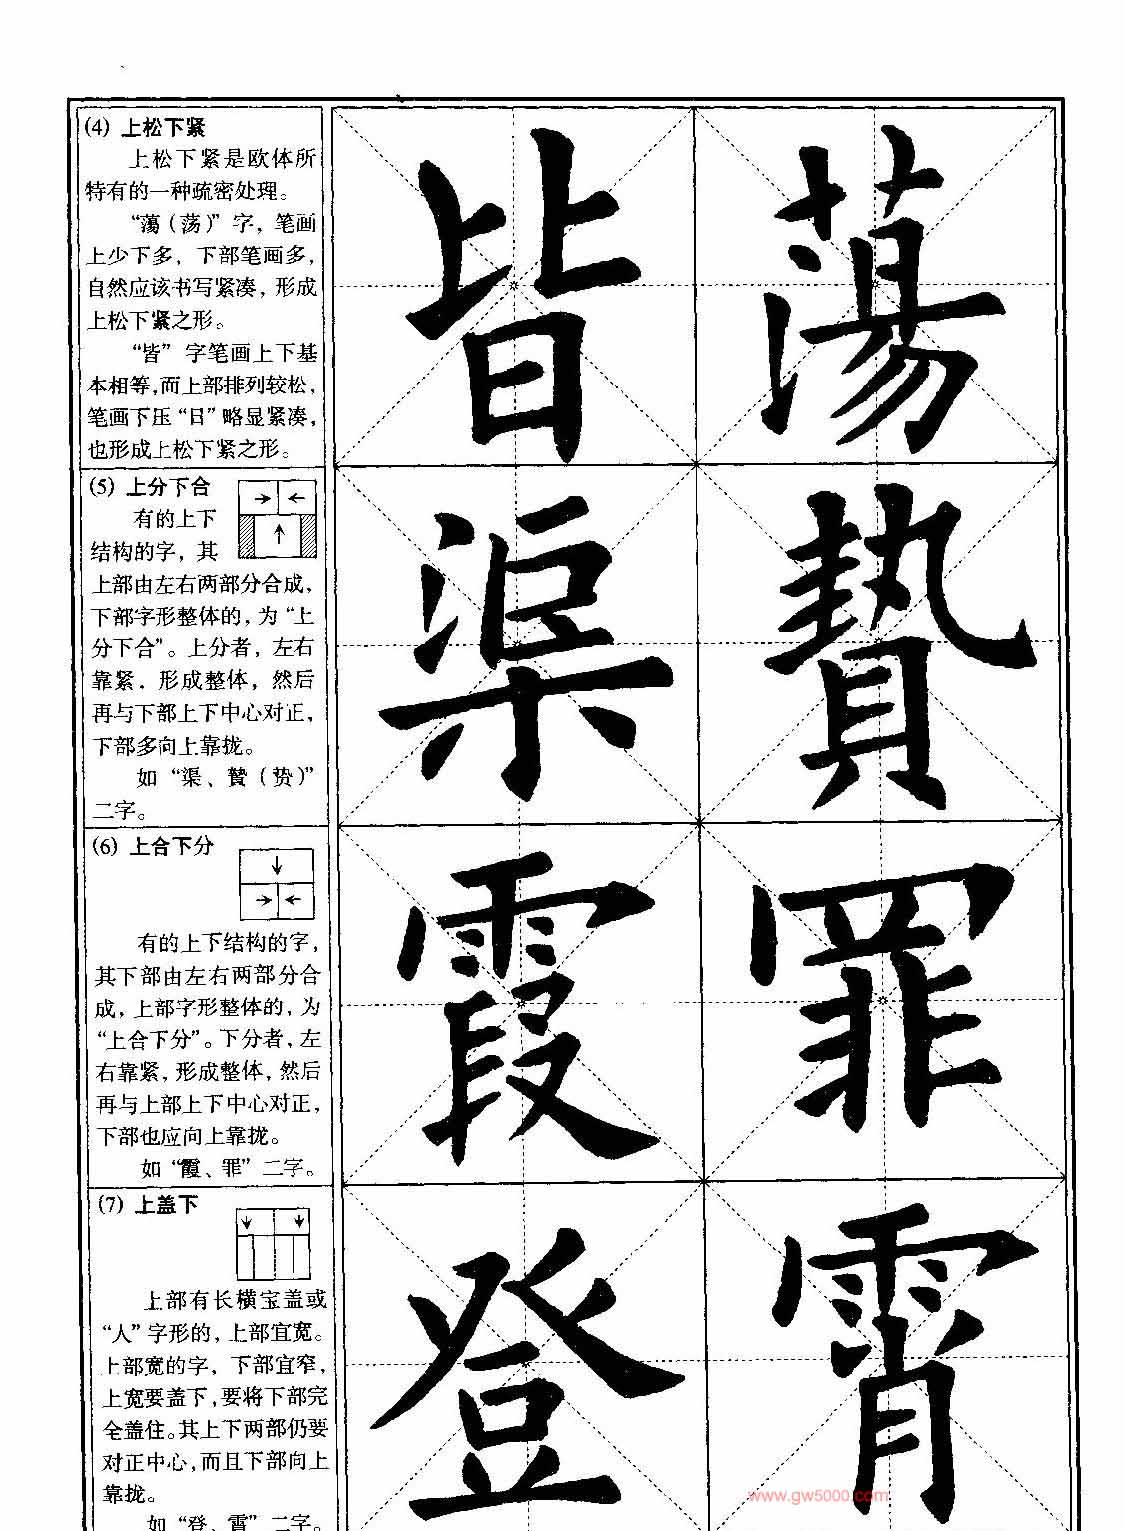 (4) 上松下紧
上松下紧是欧体所
特有的一种疏密处理。
“蕩（荡）”字，笔画
上少下多，下部笔画多，
自然应该书写紧凑，形成
上松下紧之形。
“皆”字笔画上下基
本相等，而上部排列较松，
笔画下压“日”略显紧凑，
也形成上松下紧之形。
皆 蕩
(5) 上分下合
有的上下
结构的字，其
上部由左右两部分合成，
下部字形整体的，为“上
分下合”。上分者，左右
靠紧．形成整体，然后
再与下部上下中心对正，
下部多向上靠拢。
如“渠、贄（贽）”
二字。
渠 贄
(6) 上合下分
有的上下结构的字，
其下部由左右两部分合
成，上部字形整体的，为
“上合下分”。下分者，左
右靠紧，形成整体，然后
再与上部上下中心对正，
下部也应向上靠拢。
如“霞、罪”二字。
霞 罪
(7) 上盖下
上部有长横宝盖或
“人”字形的，上部宜宽。
上部宽的字，下部宜窄，
上宽要盖下，要将下部完
全盖住。其上下两部仍要
对正中心，而且下部向上
靠拢。
如“登、霄”二字。
登 霄
www.gw5000.com